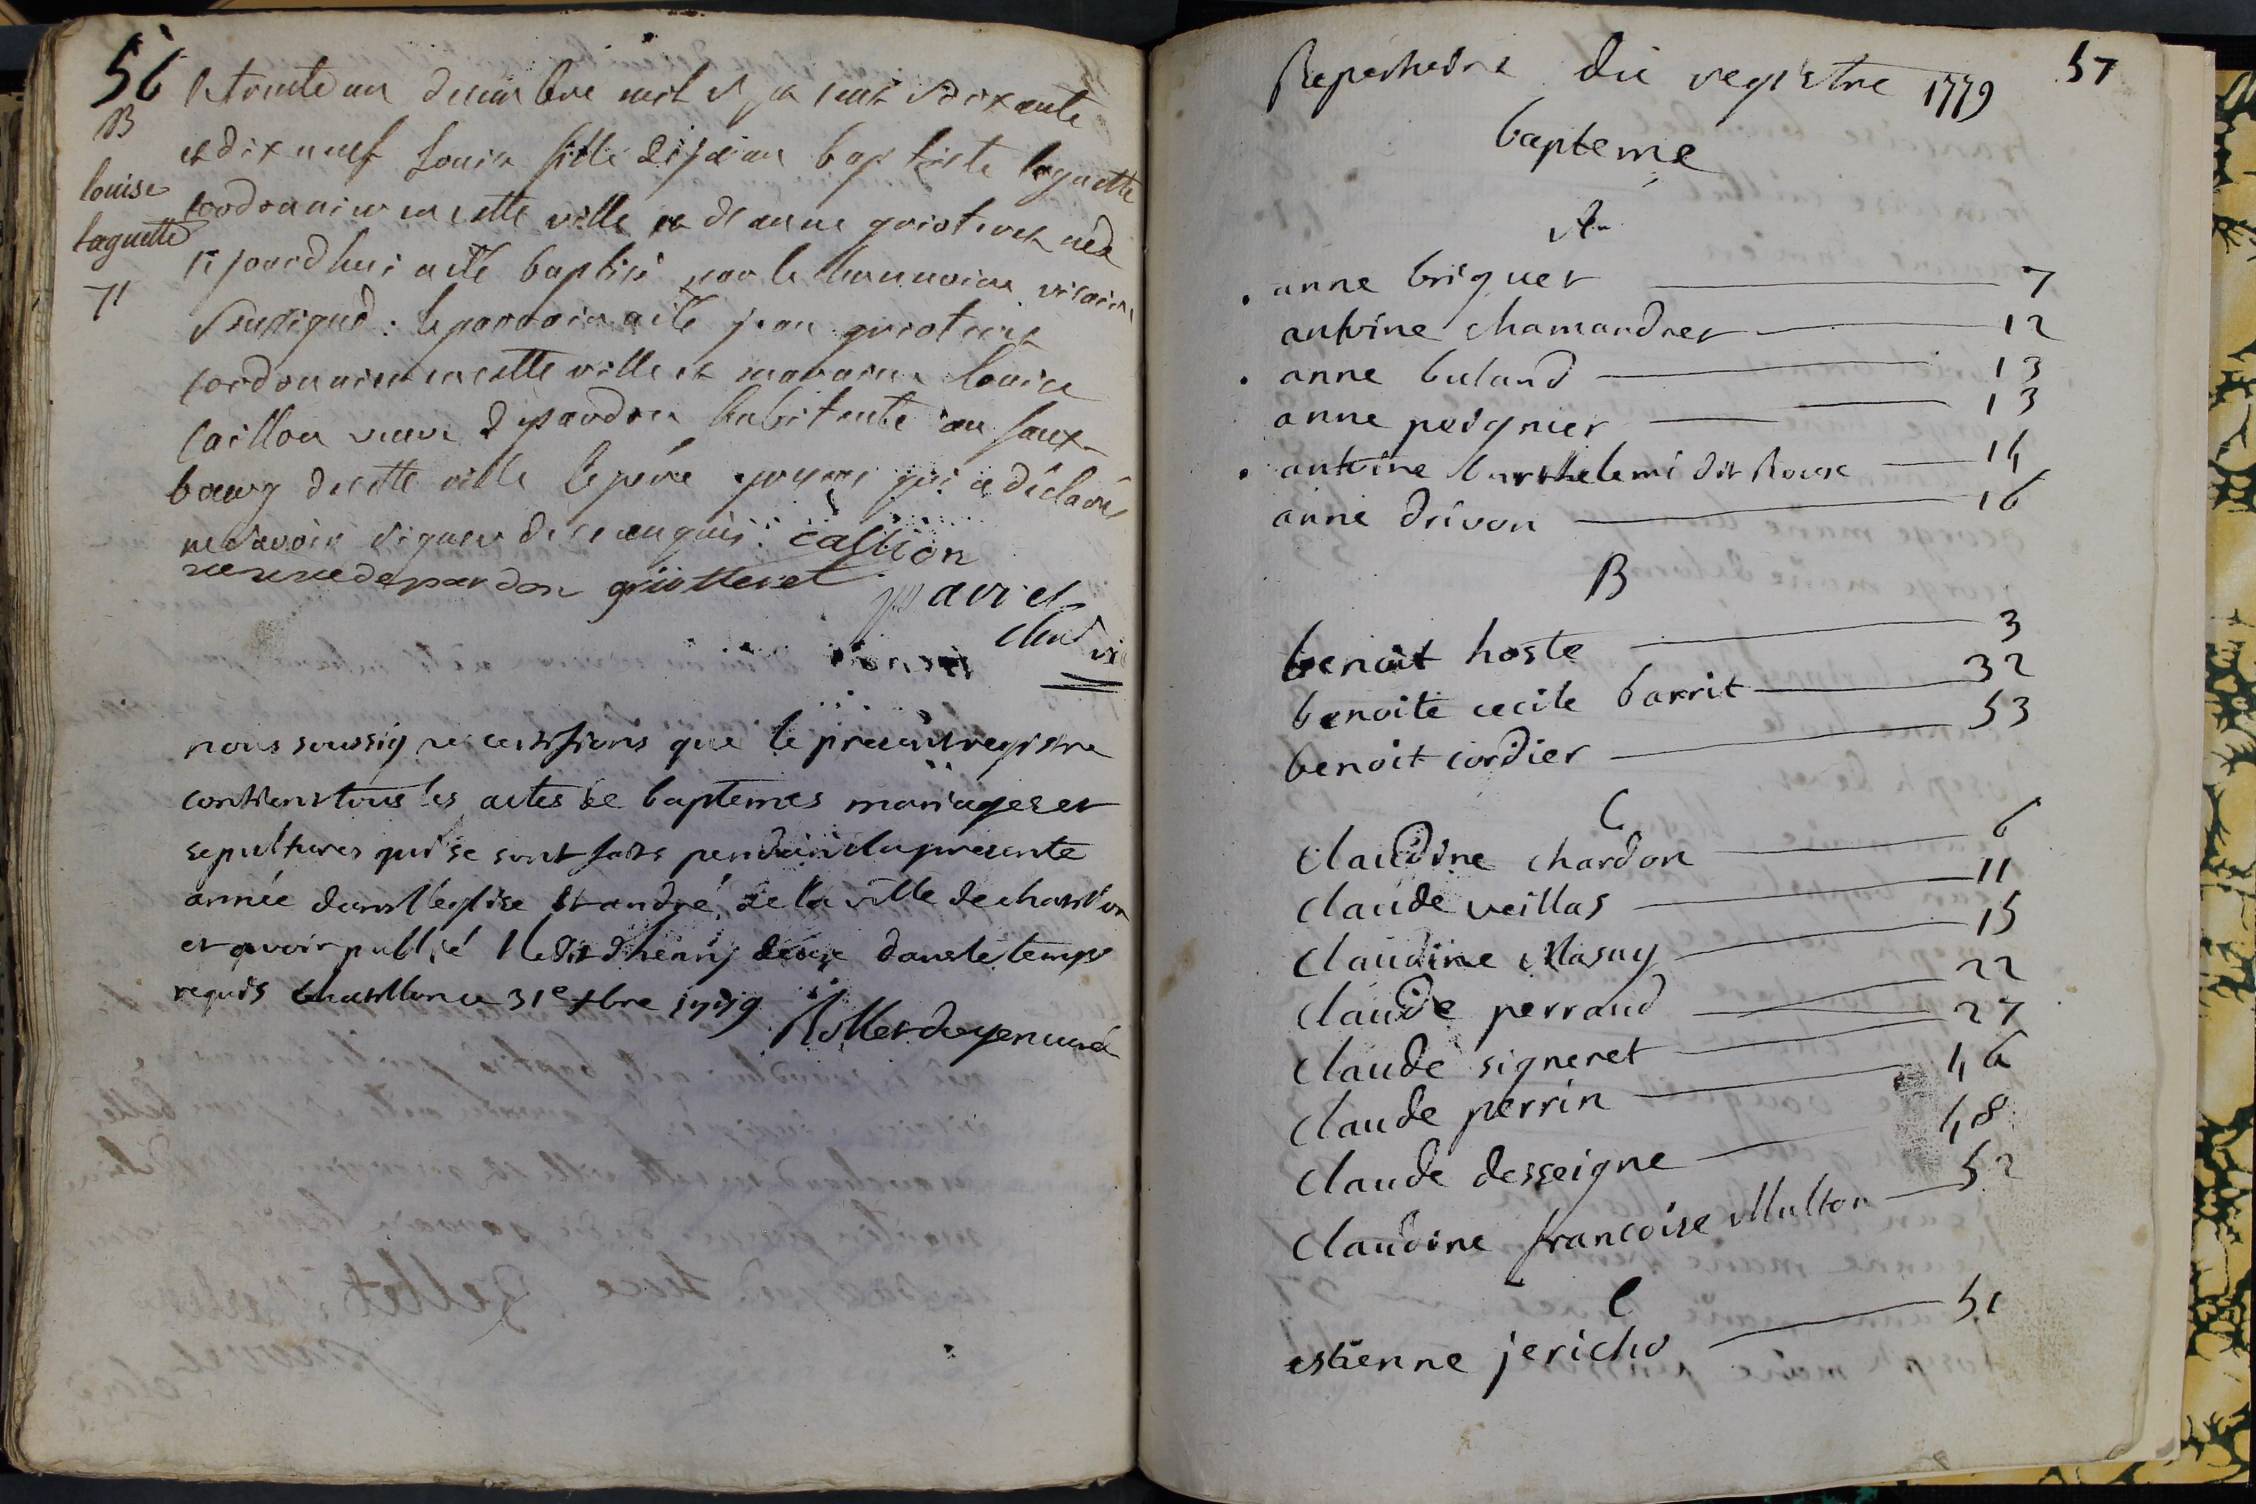 56
B
louise
laguette
71
le trente un decembre mil sept cent soixante
et dix neuf Louise fille de jean baptiste laguette
cordonnier en cette ville et d'anne grioteret née
ce jourdhui a été baptisé par le
soussigné : le parrain a été jean grioteret
cordonnier en cette ville et maraine louise
caillon veuve depardon habitante au faux-
bourg de cette ville le père qui a déclaré
ne savoir signer de ce enquis : caillon
veuve depardon griotteret
paviet
nous soussigné certifions que le present registre
contient tous les actes de baptemes mariages et
sepultures qui se sont faits pendant la presente
année dans l'eglise St andré de la ville de chatillon
et avoir publié l'edit d'henry deux dans le temps
requis chatillon ce 31e xbre 1779
Rollet doyen curé
57
Repertoire du registre 1779
bapteme
A
. anne briquet 7
antoine chamandret 12
. anne buland 13
anne poignier 13
. antoine barthelemi dit Rouse 14
anne drivon 16
B
benoit hoste 3
benoite cecile barrit 32
benoit cordier 53
C
claudine chardon 6
claude veillas 11
claudine Masuy 15
claude perraud 22
claude signeret 27
claude perrin 46
claude desseigne 48
claudine francoise Multon 52
E
estienne jericho 51